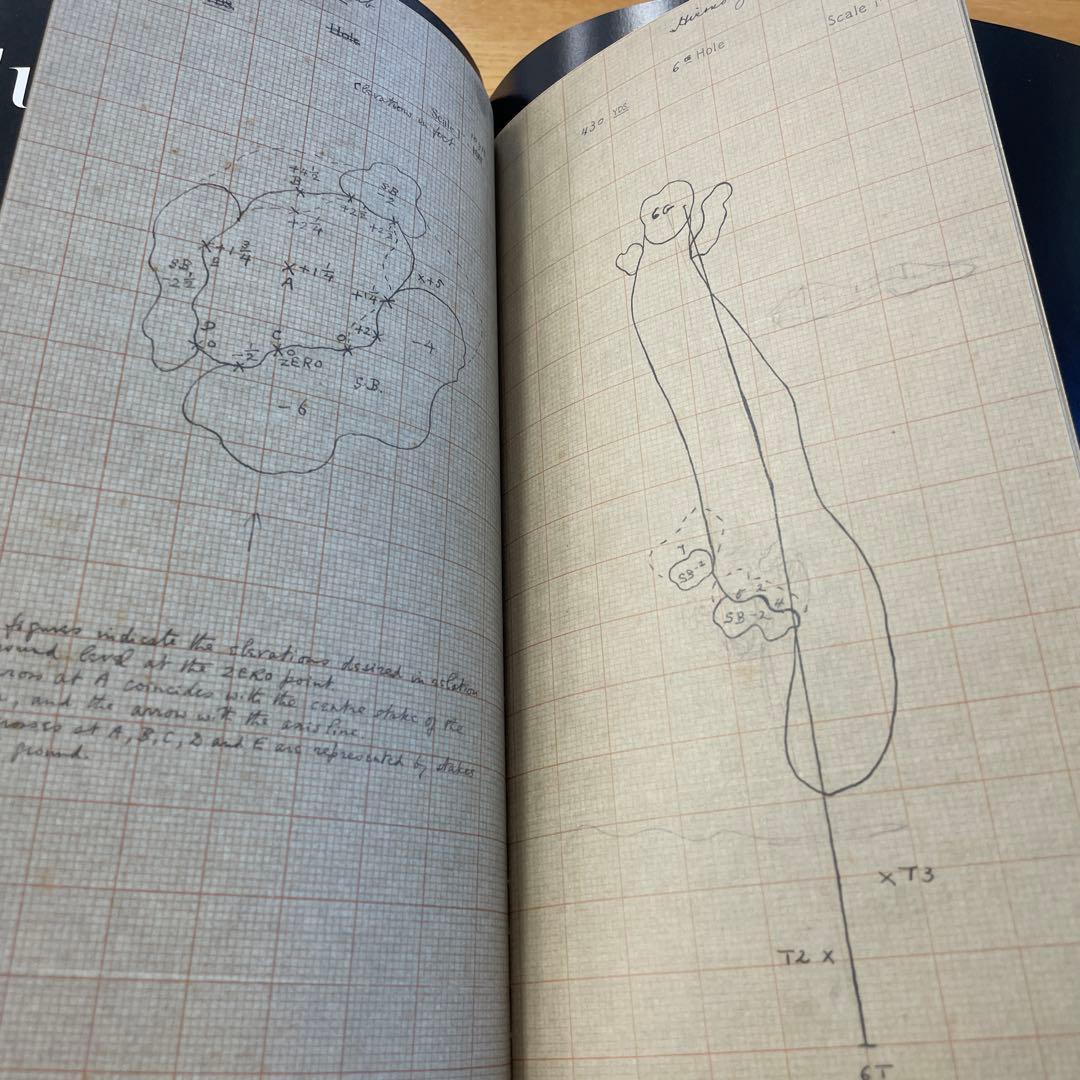 Hole
Scale 1
elevations in feet
+4 1/2
B
SB
+2 1/2
+2 1/4
+1 3/4
E
SB
-2 1/2
+1 1/4
A
x+5
+1 1/4
+2
-4
D
0
-1/2
C
0
ZERO
0
S.B.
-6
figures indicate the elevations desired in relation
ground level at the ZERO point.
cross at A coincides with the centre stake of the
, and the arrow with the axis line.
crosses at A, B, C, D and E are represented by stakes
ground.
Scale 1"
6th Hole
430 YDS
6G
SB-2
2
4
SB-2
xT3
T2 x
6T